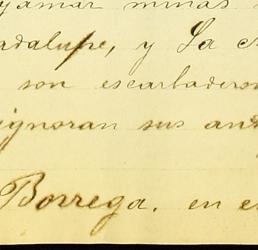 llamar minas
adalupe, y La
son escarbaderos
ignoran sus an
Borrega. en e